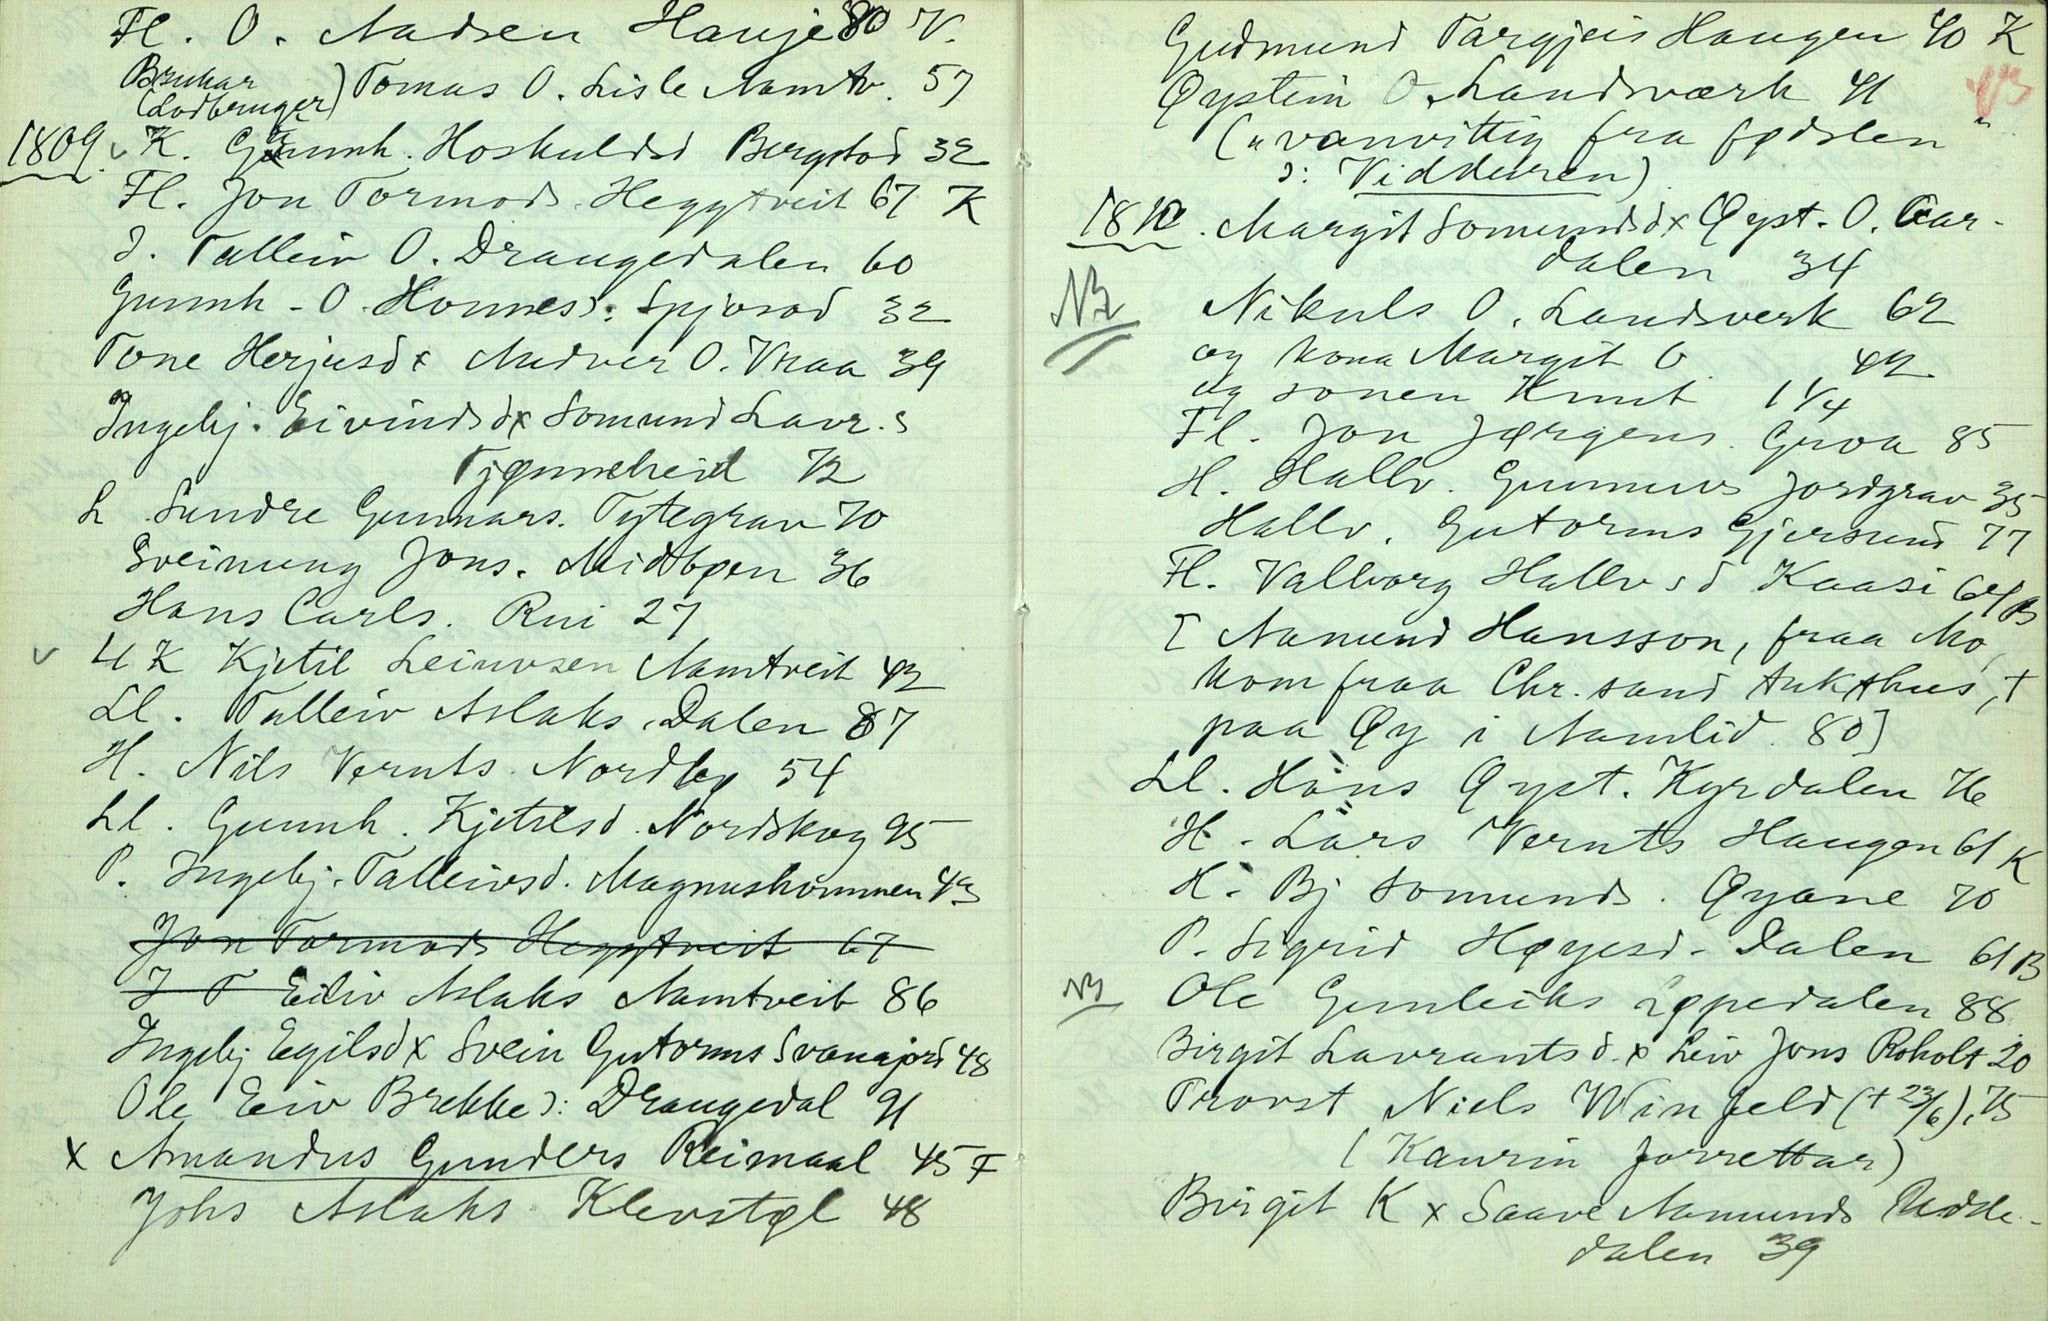 Fl. O. Aadsen Hauje 80 K.
Brukar
(Lodbruger) Tomas O. Lisle Aamtv. 57
1809. K. Gunnh. Hoskuldsd Bergstod 32
Fl. Jon Tormods. Heggtveit 67 K
J. Talleiv O. Draugedalen 60
Gunnh. O. Honnes ɔ: Spjosod 32
Tone Herjusd x Audver O. Vraa 39
Ingebj. Eivindsd x Somund Lavr.s
Tjønnheid 72
L. Sundre Gunnars. Tytegrav 70
Sveinung Jons. Midtbøen 36
Hans Carls. Rui 27
LL K Kjetil Leivsen Aamtveit 42
Ll. Talleiv Aslaks. Dalen 87
H. Nils Vernts. Nordbø 54
Ll. Gunnh. Kjetilsd. Nordskog 95
P. Ingebj. Talleivsd. Magnushommen 43
Jon Tormods Heggtveit 67
J T Eiliv Aslaks Aamtveit 86
Ingebj Egilsd x Svein Gutorms Svanajord 48
Ole Eiv Brekke ɔ: Draugedal 91
x Amandus Gunders Reimaal 45 F
Johs Aslaks Klevstøl 48
Gudmund Targjeis Haugen 40 K
Øystein O. Landsværk 41
("vanvittig fra fødslen"
ɔ: Vidduren)
1810. Margit Somundsd x Øyst. O. Gar-
dalen 34
NB Nikuls O. Landsverk 62
og kona Margit O 42
og sonen Knut 1 1/4
Fl. Jon Jørgens. Gruva 85
H. Hallv. Gunnuvs Jordgrav 35
Hallv. Gutorms Gjersund 77
Fl. Valborg Hallvsd Kaasi 64 B
[ Aamund Hansson, fraa Mo,
kom fraa Chr.sand tukthus, †
paa Øy i Aamlid 80]
Ll. Hans Øyst. Kyrdalen 76
H. Lars Vernts Haugen 61 K
H. Bj Somunds. Øyane 70
P. Sigrid Høyesd. Dalen 61 B
NB Ole Gunleiks Løpedalen 88
Birgit Lavrantsd. x Leiv Jons Roholt 20
Provst Niels Winfeld († 23/6), 75
(Kaurin forrettar)
Birgit K x Saave Aamunds Udde-
dalen 39